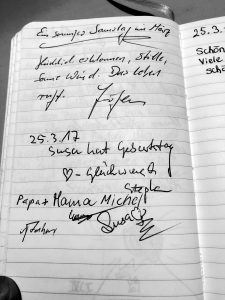 Ein sonniger Samstag im März
erklommen, Stille,
Sonne Wind. Das Leben
ruft.
25.3.17
Susa hat Geburtstag
♡-Glückwunsch
Stephan
Papa + Mama Michel
Susa
25.3.1
Schön
Viele
schö